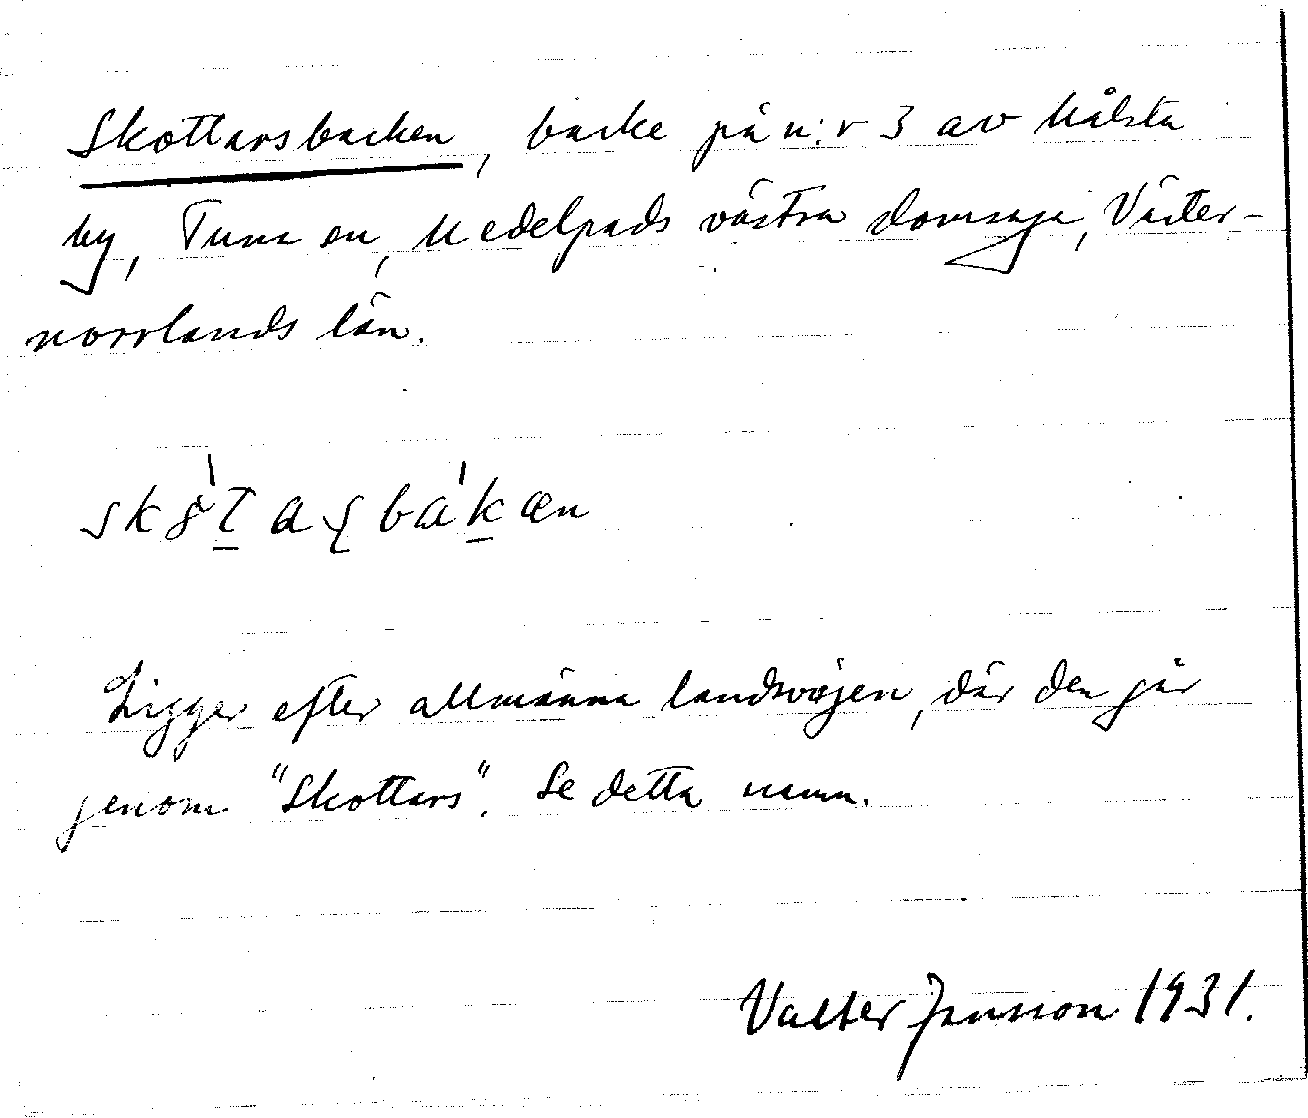 Skottarsbacken, backe på n:r 3 av Målsta
by, Tuna sn, Medelpads västra domsaga, Väster-
norrlands län.
Ligger efter allmänna landsvägen, där den går
genom "Skottars". Se detta namn.
Valter Jansson 1931.